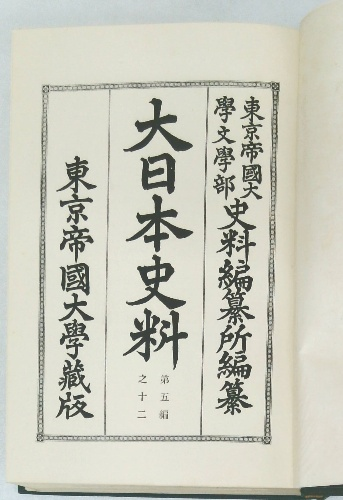 東京帝國大
學文學部
史料編纂所編纂
大日本史料
第五編
之十二
東京帝國大學藏版